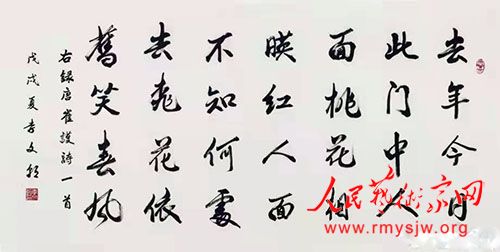 去年今日
此门中人
面桃花相
暎红人面
不知何處
去桃花依
舊笑春风
右録唐崔護詩一首
戊戌夏李文
人民藝術家网
www.rmysjw.org